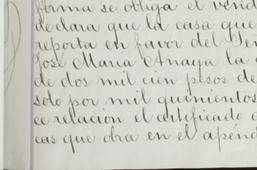 forma se obliga el vend
declara que la casa que
reporta en favor del Se
José María Anaya la
de dos mil cien pesos de
solo por mil quinientos
ce relacion el certificado
cas que obra en el apend